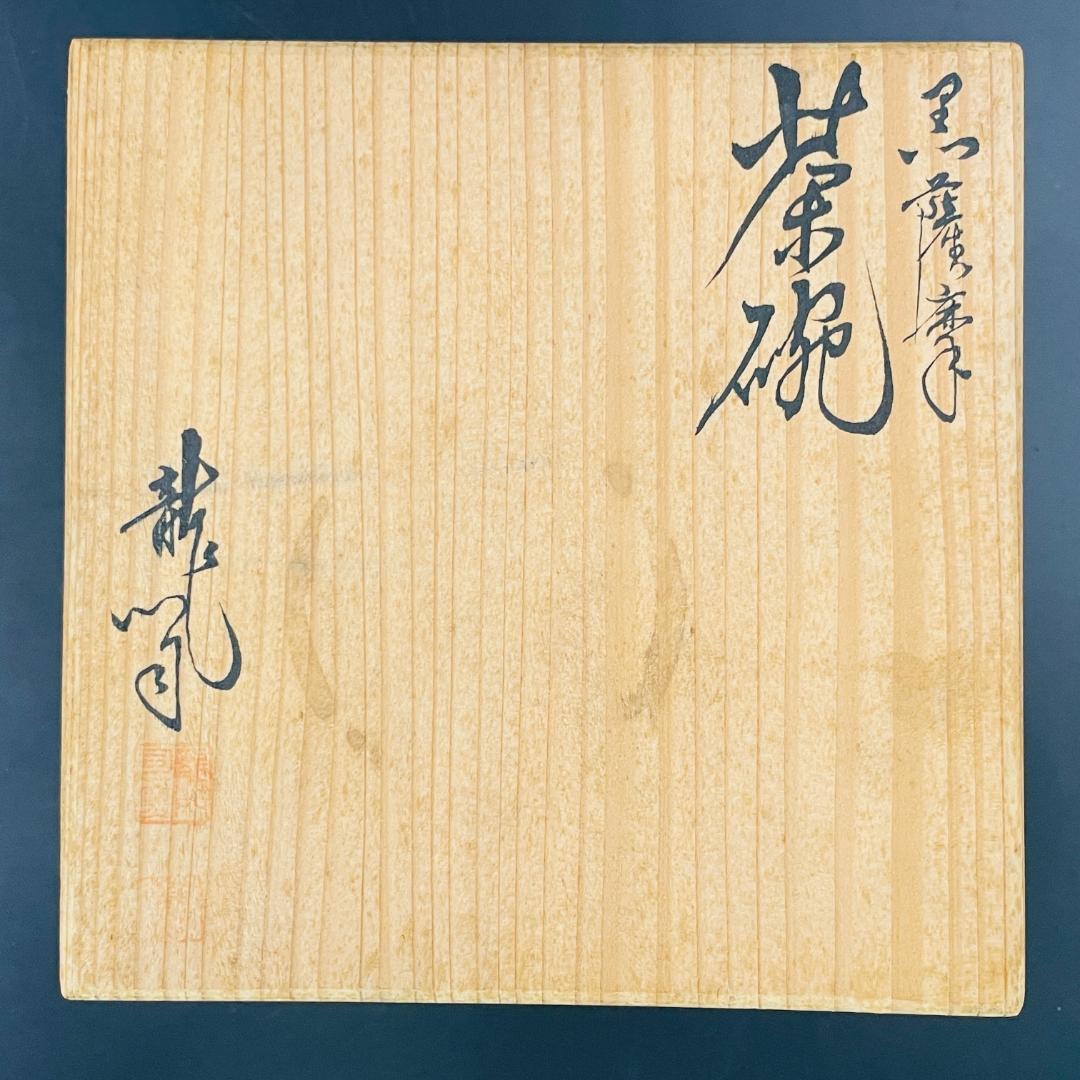 黒薩摩
茶碗
龍